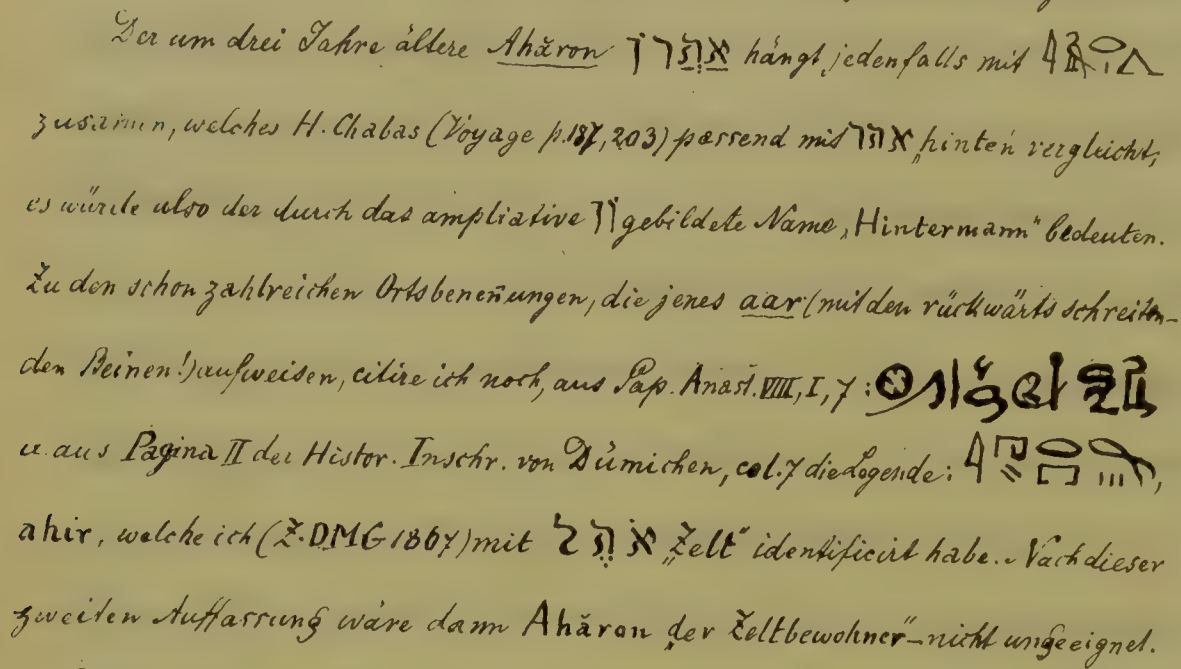 Der um drei Jahre ältere Ahăron אַהֲרֹן hängt jedenfalls mit
zusamm, welches H. Chabas (Voyage p. 187, 203) passend mit אחר „hinten vergleicht;
es würde also der durch das ampliative וֹן gebildete Name „Hintermann“ bedeuten.
Zu den schon zahlreichen Ortsbeneñungen, die jenes aar (mit den rückwärts schreiten-
den Beinen!) aufweisen, citire ich noch, aus Pap. Anast. VIII, I, 7 :
u. aus Pagina II der Histor. Inschr. von Dümichen, col. 7 die Legende: ,
ahir, welche ich (Z. DMG 1867) mit אֹהֶל „Zelt“ identificirt habe. Nach dieser
zweiten Auffassung wäre dann Ahăron „der Zeltbewohner“ – nicht ungeeignet.